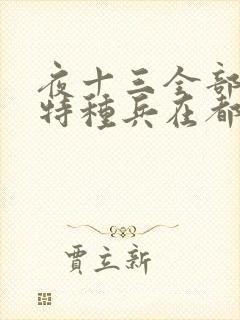 夜十三全部
特種兵在都
賈立新